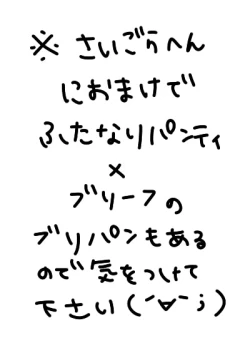 ※さいごらへん
におまけで
ふたなりパンティ
×
ブリーフの
ブリパンもある
ので気をつけて
下さい(´∀`;)